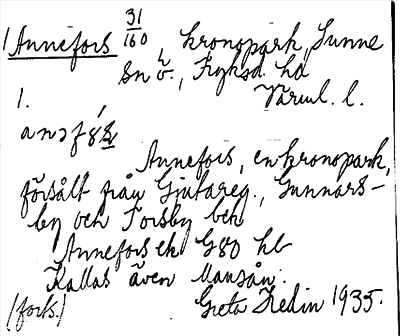 1 Annefors 31/160, kronopark, Sunne
sn o. h., Fryksd. hd
1. Värml. l.
Annefors, en kronopark,
försålt från Gjutareg., Gunnars-
by och Forsby beh
Annefors ek G80 hb
Kallas även Mansån.
(forts.) Greta Hedin 1935.